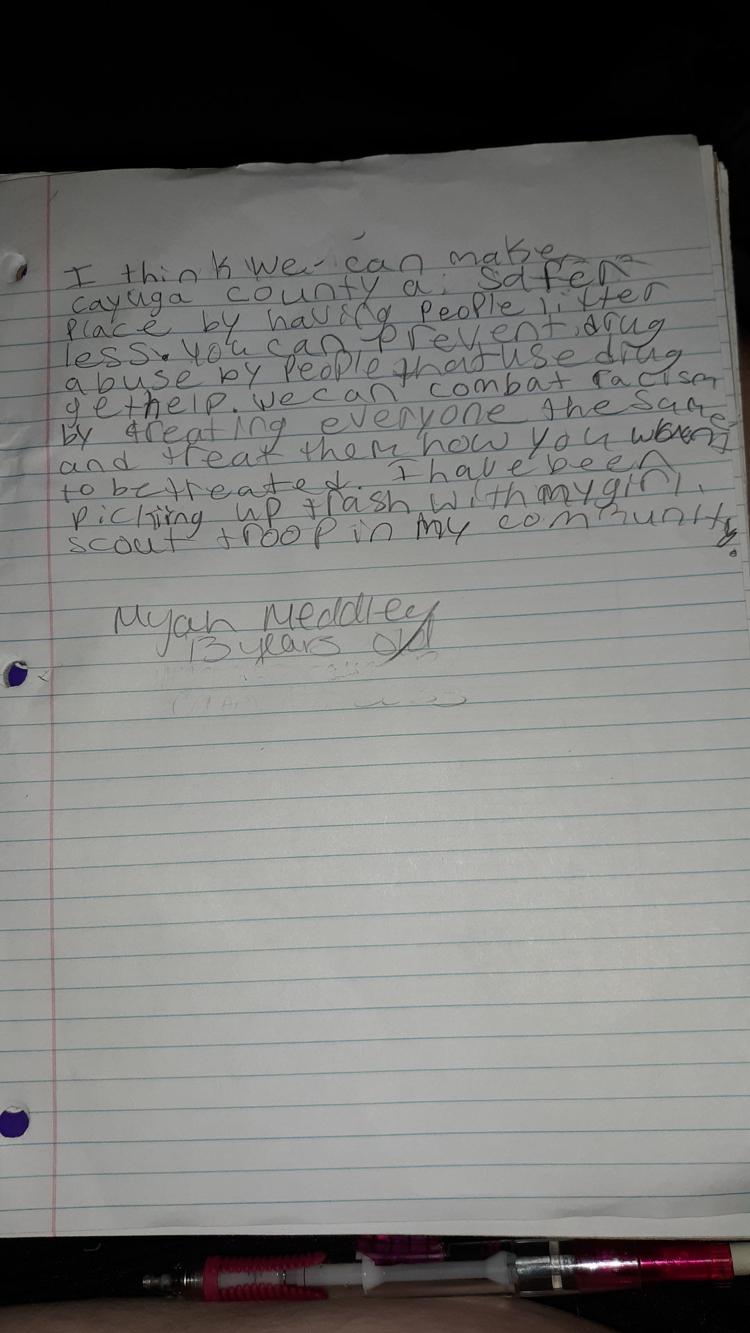 I think we can make
cayuga county a safer
place by having people litter
less. you can prevent drug
abuse by people that use drug
get help. we can combat racism
by treating everyone the same
and treat them how you want
to be treated. I have been
picking up trash with my girl
scout troop in my community.
Myah Meddley
13 years old